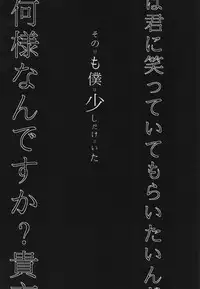 は君に笑っていてもらいたいん
も僕は少しだけ
いた
何様なんですか？貴方